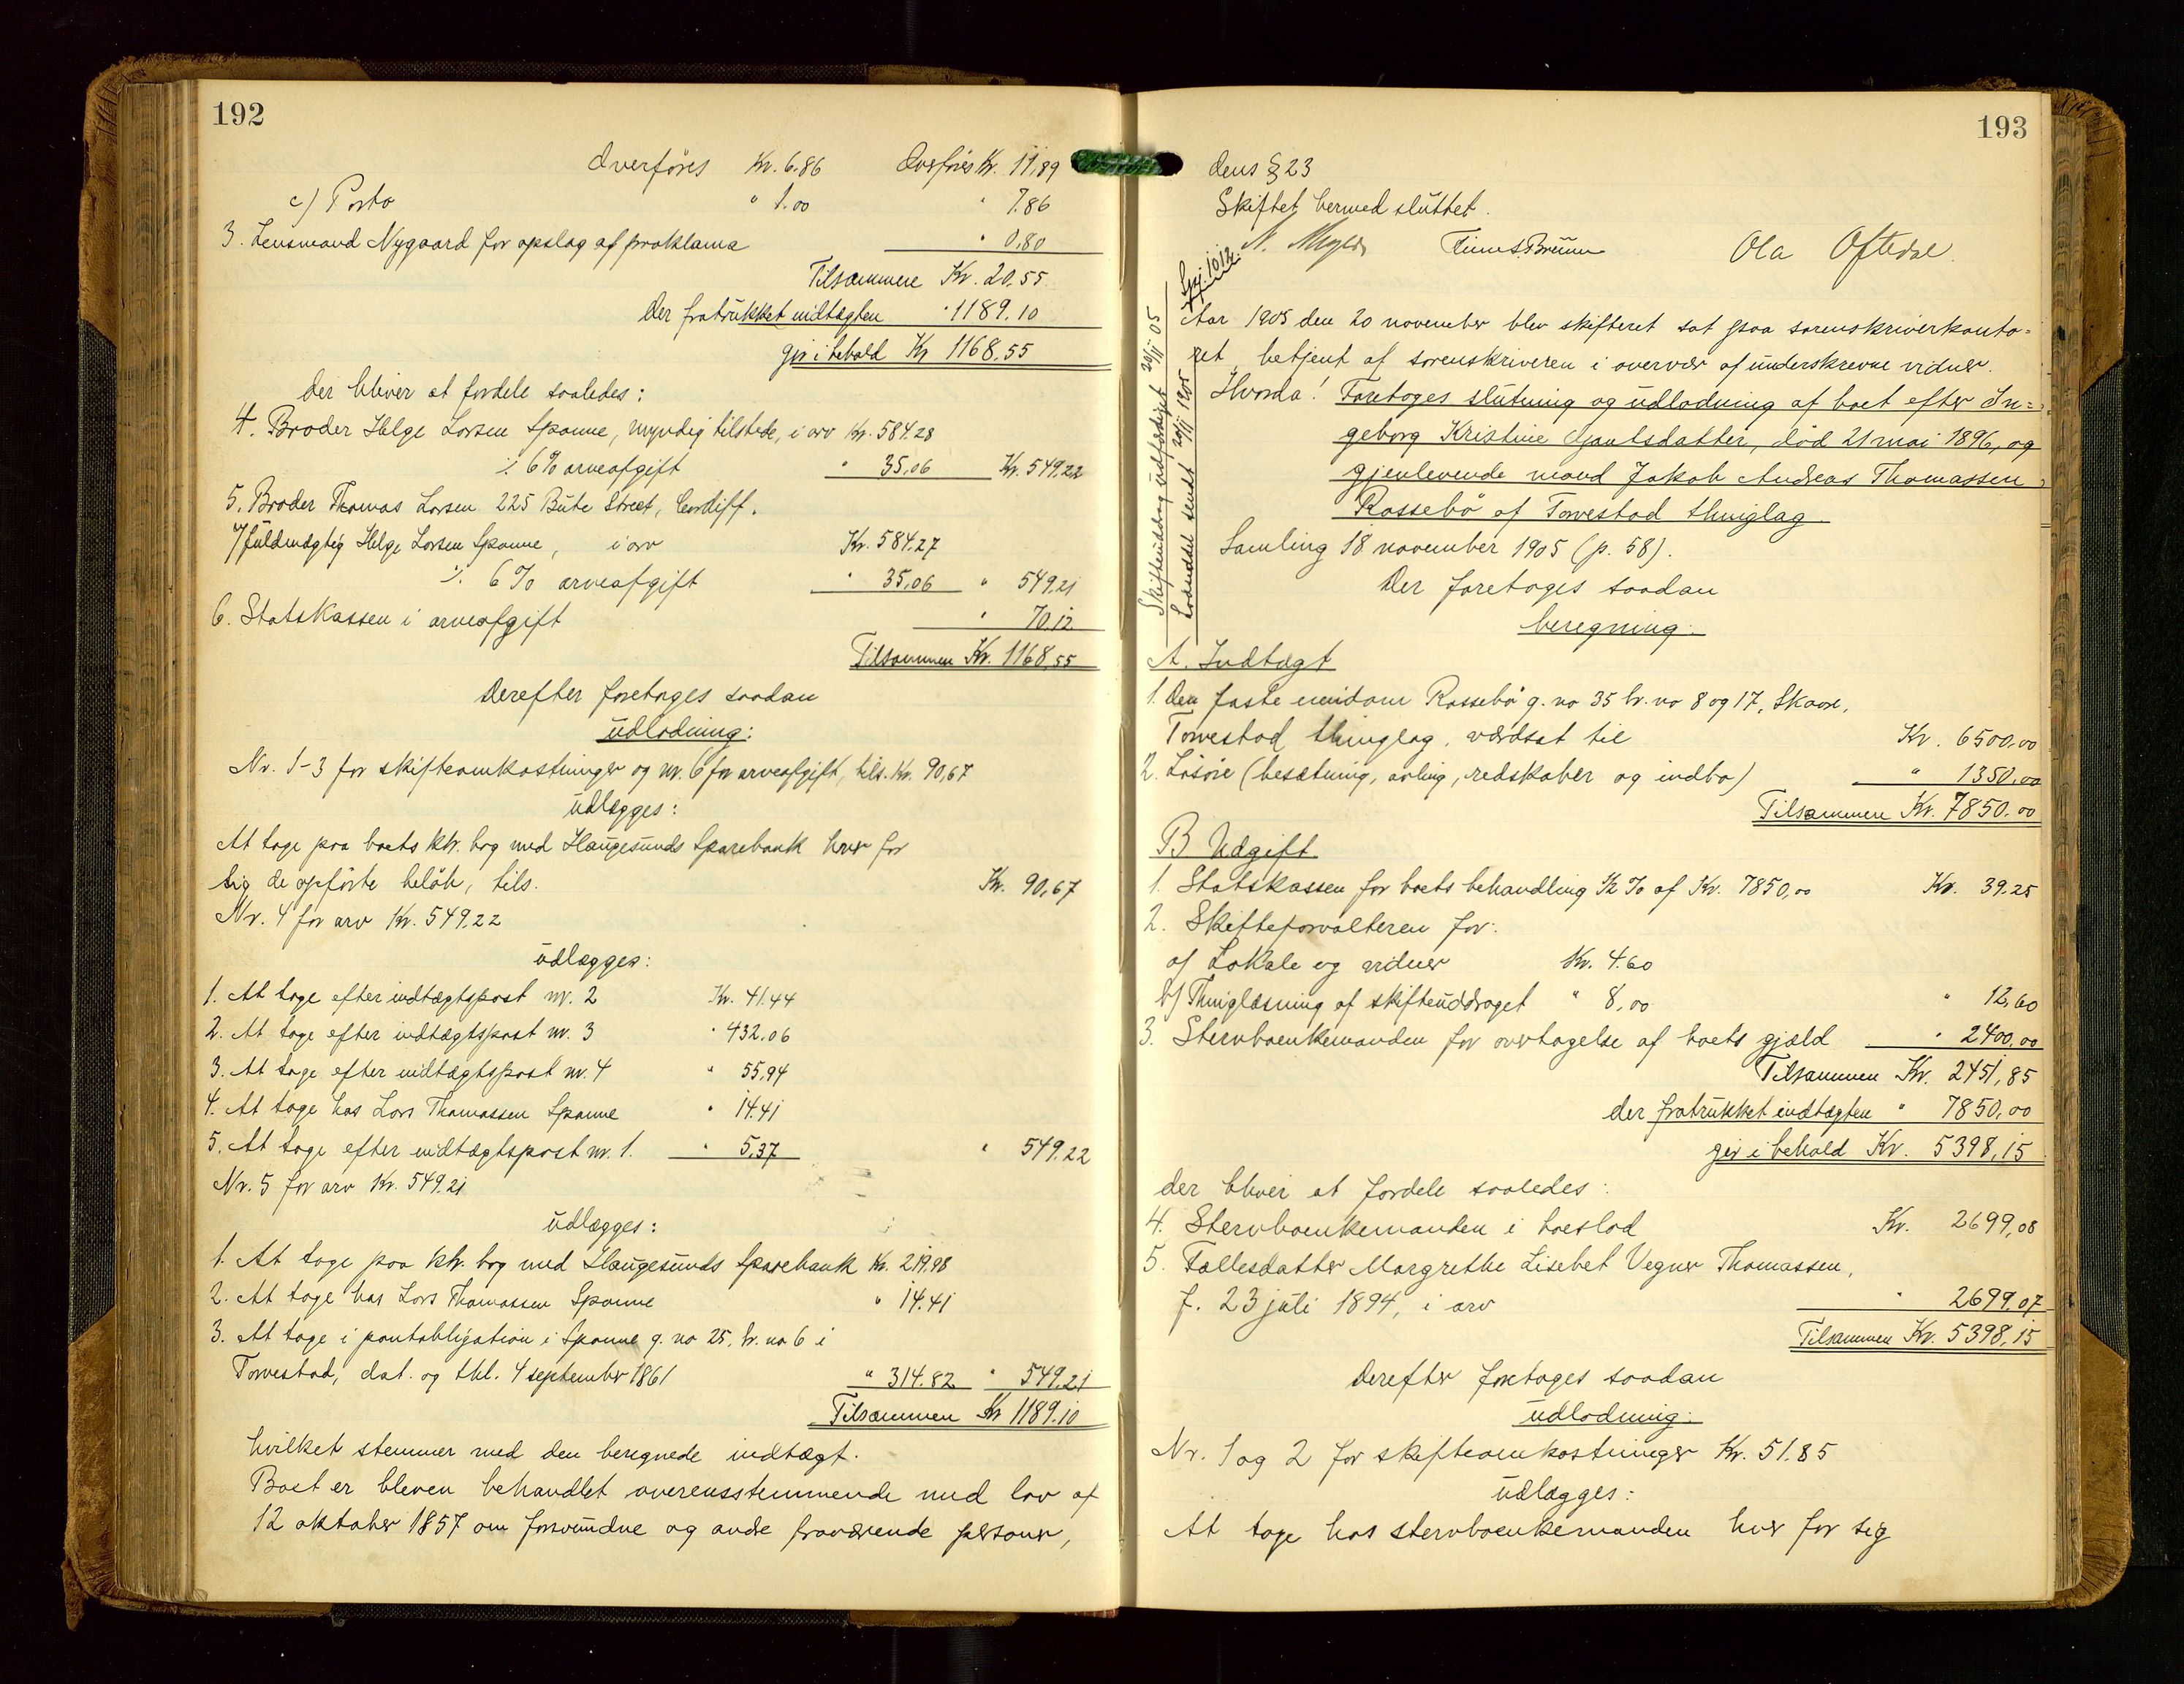 192
Overföres Kr. 6.86 Overföres Kr. 11,89
c) Porto " 1.00 " 7.86
3. Lensmand Nygaard for opslag af proklama " 0,80
Tilsammen Kr. 20,55
der fratrukket indtægten " 1189.10
gir i behold Kr 1168,55
der bliver at fordele saaledes:
4. Broder Helge Larsen Spanne, myndig tilstede, i arv Kr. 584.28
÷ 6% arveafgift " 35,06 Kr. 549,22
5. Broder Thomas Larsen 225 Bute Street, Cardiff.
v/ fuldmægtig Helge Larsen Spanne, i arv Kr. 584.27
÷ 6% arveafgift " 35,06 " 549,21
6. Statskassen i arveafgift " 70,12
Tilsammen Kr. 1168,55
Derefter foretoges saadan
udlodning:
Nr. 1-3 for skifteomkostninger og nr. 6 for arveafgift, tils. Kr. 90,67
udlægges:
At tage paa boets ktr. bog med Haugesunds Sparebank hver for
sig de opförte belöb, tils. Kr. 90,67
Nr. 4 for arv Kr. 549,22
udlægges:
1. At tage efter indtægtspost nr. 2 Kr. 41.44
2. At tage efter indtægtspost nr. 3 " 432,06
3. At tage efter indtægtspost nr. 4 " 55,94
4. At tage hos Lars Thomassen Spanne " 14.41
5. At tage efter indtægtspost nr. 1. " 5,37 " 549,22
Nr. 5 for arv Kr. 549,21
udlægges:
1. At tage paa ktr. bog med Haugesunds Sparebank Kr. 219,98
2. At tage hos Lars Thomassen Spanne " 14.41
3. At tage i pantobligation i Spanne g. no 25, br. no 6 i
Torvestad, dat. og thl. 4 september 1861 " 314.82 " 549,21
Tilsammen Kr 1189.10
hvilket stemmer med den beregnede indtægt.
Boet er bleven behandlet overensstemmende med lov af
12 oktober 1857 om forsvundne og andre fraværende personer,
193
dens § 23
Skiftet hermed sluttet.
Ola Oftedal
Skifteuddrag udfærdiget 20/11 05
sendt 20/11 1905
Aar 1905 den 20 november blev skifteret sat paa sorenskriverkonto=
ret, betjent af sorenskriveren i overvær af underskrevne vidner.
Hvorda! Foretoges slutning og udlodning af boet efter In=
geborg Kristine Gjeutsdatter, död 21 mai 1896, og
gjenlevende mand Jakob Andreas Thomassen
Rossebö af Torvestad thinglag
Samling 18 november 1905 (p. 58).
Der foretoges saadan
beregning:
A. Indtægt
1. Den faste eiendom Rossebö g. no 35 br. no 8 og 17, Skaare,
Torvestad thinglag, værdsat til Kr. 6500,00
2. Lösöre (besætning, avling, redskaber og indbo) " 1350,00
Tilsammen Kr. 7850.00
B Udgift.
1. Statskassen for boets behandling ½ % af Kr. 7850,00 Kr. 39.25
2. Skifteforvalteren for:
a/ Lokale og vidner Kr. 4.60
b/ Thinglæsning af skifteuddraget " 8,00 " 12,60
3. Stervboenkemanden for overtagelse af boets gjæld " 2400,00
Tilsammen Kr. 2451,85
der fratrukket indtægten " 7850,00
gir i behold Kr. 5398,15
der bliver at fordele saaledes:
4. Stervboenkemanden i boeslod Kr. 2699,08
5. Fællesdatter Margrethe Lisebet Vegner Thomassen,
f. 23 juli 1894, i arv " 2699.07
Tilsammen Kr. 5398,15
Derefter foretoges saadan
udlodning:
Nr. 1 og 2 for skifteomkostninger Kr. 51.85
udlægges:
At tage hos stervboenkemanden hver for sig